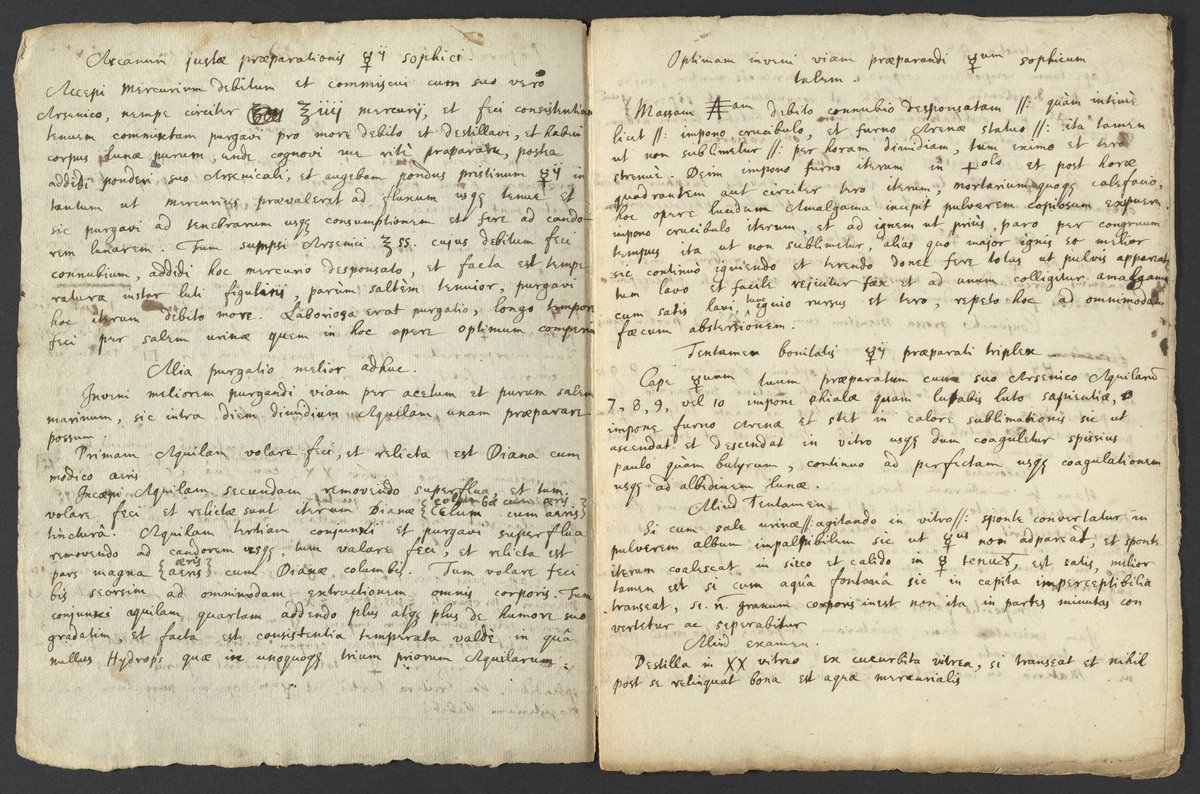 Arcanum justæ præparationis ☿ij sophici.
Accepi mercurium debitum et commiscui cum suo vero
Arsenico, nempe circiter ʒiiij mercurij, et feci consistentiam
tenuem commixtam purgavi pro more debito et destillavi, et habui
corpus lunæ purum, unde cognovi me ritè præparare, postea
addidi ponderi suo Arsenicali, et augebam pondus pristinum ☿ij in
tantum ut mercurius prævaleret ad fluxum usqꝫ tenue et
sic purgavi ad tenebrarum usqꝫ consumptionem et fere ad cando-
rem lunarem. Tum sumpsi Arsenici ʒ ss. cujus debitum feci
connubium, addidi hoc mercurio desponsato, et facta est tempe
ratura instar luti figulini, parùm saltem tenuior, purgavi
hoc iterum debito more. Laboriosa erat purgatio, longo tempore
feci per salem urinæ quem in hoc opere optimum comperi
Alia purgatio melior adhuc.
Inveni meliorem purgandi viam per acetum et purum salem
marinum, sic intra diem dimdium Aquilam unam præparare
possum
Primam Aquilam volare feci, et relicta est Diana cum
modico æris
Incæpi Aquilam secundam removendo superflua, et tum
volare feci et relictæ sunt iterum Dianæ {Colum cum aeris}
columbæ cum æris
tincturâ. Aquilam tertiam conjunxi et purgavi superflua
removendo ad candorem usqꝫ, tum valare feci, et relicta est
pars magna {aeris} cum Dianæ columbis. Tum volare feci
æris
bis seorsim ad omnimodam extractionem omnis corporis. Tum
conjunxi aquilam quartam addendo plus atqꝫ plus de humore suo
gradatim, et facta est consistentia temperata valdè in quâ
nullus Hydrops quæ in unoquoqꝫ trium priorum Aquilarum.
Optimam inveni viam præparandi ☿ium sophicum
talem.
Massam am debito connubio desponsatam //: quam intimè
licet //: impono crucibulo, et furno Arenæ statuo //: ita tamen
ut non sublimetur //: per horam dimidiam, tum eximo et tero
strenue. Dein impono furno iterum in +olo et post horæ
quadrantem aut circiter tero iterum, mortarium quoqꝫ calefacio,
hoc opere lucidum Amalgama incipit pulverem copiosum expuere.
impono crucibulo iterum, et ad ignem ut priùs, paro per congruum
tempus ita ut non sublimetur, alias quo major ignis eo melior
sic continuo igniendo et terendo donec fere totus ut pulvis appareat
tum lavo et facile rejicitur fæx et ad unum colligitur amalgama
cum satis lavi, tunc ignio rursus et tero, repeto hoc ad omnimodam
fæcum abstersionem.
Tentamen bonitatis ☿ij præparati triplex
Cape ☿ium tuum præparatum cum suo Arsenico Aquilarũ
7, 8, 9, vel 10 impone phialæ quam lutabis luto sapientiæ,
impone furno Arenæ et stet in calore sublimationis sic ut
ascendat et descendat in vitro usqꝫ dum coaguletur spissius
paulò quàm butyrum, continuo ad perfectam usqꝫ coagulationem
usqꝫ ad albedinem lunæ.
Aliud Tentamen
Si cum sale urinæ //: agitando in vitro //: sponte convertatur in
pulverem album impalpabilem sic ut ☿ius non adpareat, et sponte
iterum coalescat in sicco et calido in ☿ tenuē, est satis, melior
tamen est si cum aquâ fontanâ sic in capita imperceptibilia
transeat, si. n. granum corporis inest non ita in partes minutas con
vertetur ac seperabitur
Aliud examen.
Destilla in XX vitreo ex cucurbita vitrea, si transeat et nihil
post se relinquat bona est aqua mercurialis